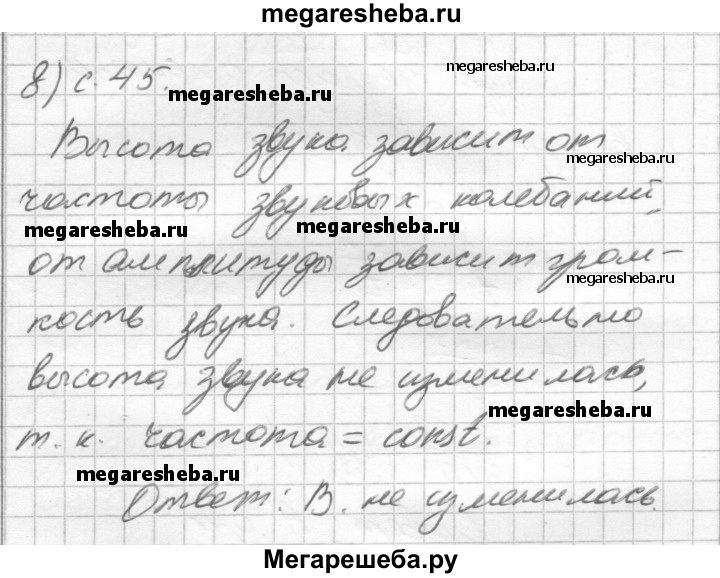 megaresheba.ru
8) с. 45.
megaresheba.ru
megaresheba.ru
Высота звука зависит от
megaresheba.ru
частоты звуковых колебаний,
megaresheba.ru
megaresheba.ru
от амплитуды зависит гром-
megaresheba.ru
кость звука. Следовательно
высота звука не изменилась,
megaresheba.ru
т. к. частота = const.
megaresheba.ru
Ответ: В. не изменилась.
Мегарешеба.ру